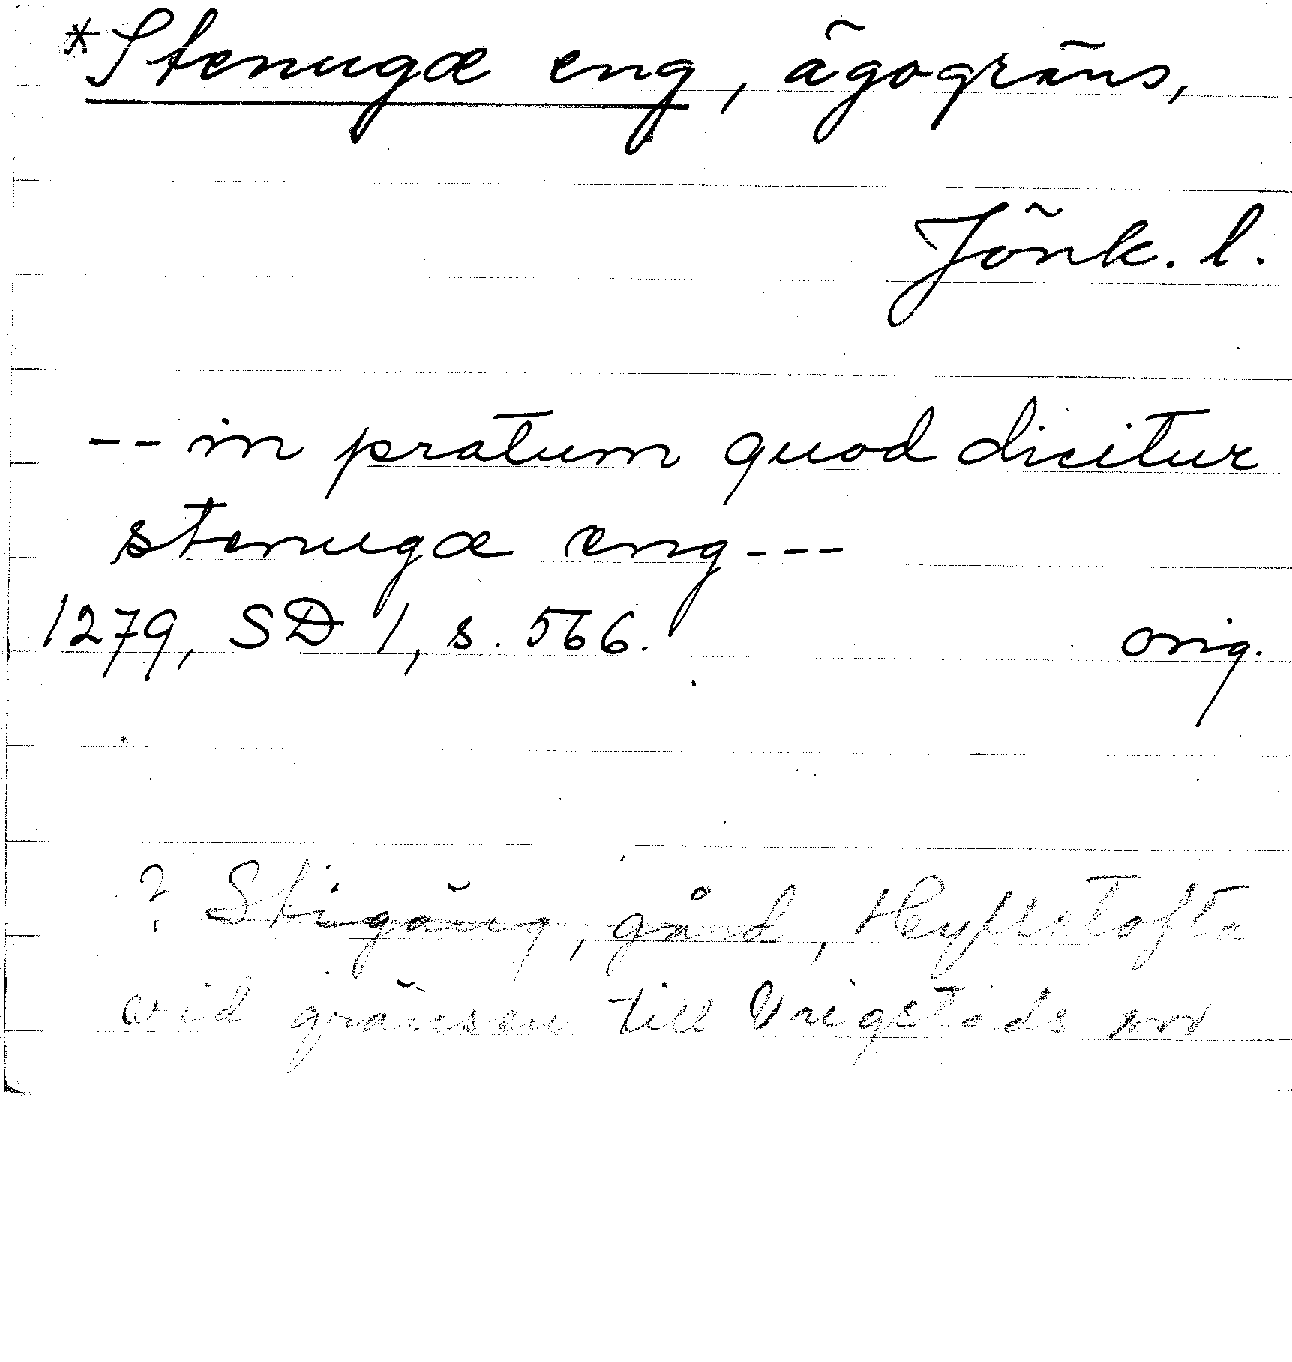 *Stenugæ eng, ägogräns,
Jönk. l.
-- in pratum quod dicitur
stenugæ eng ---
1279, SD 1, s. 566. orig.
? Stigäng, gård, Hylletofta
vid gränsen till Vrigstads